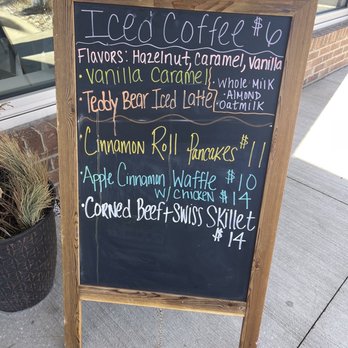 Iced Coffee $6
Flavors: Hazelnut, caramel, vanilla
• Vanilla Caramel
• Whole Milk
• Teddy Bear Iced Latte
• Almond
• Oatmilk
• Cinnamon Roll Pancakes $11
• Apple Cinnamon Waffle $10
w/ Chicken $14
• Corned Beef + Swiss Skillet
$14